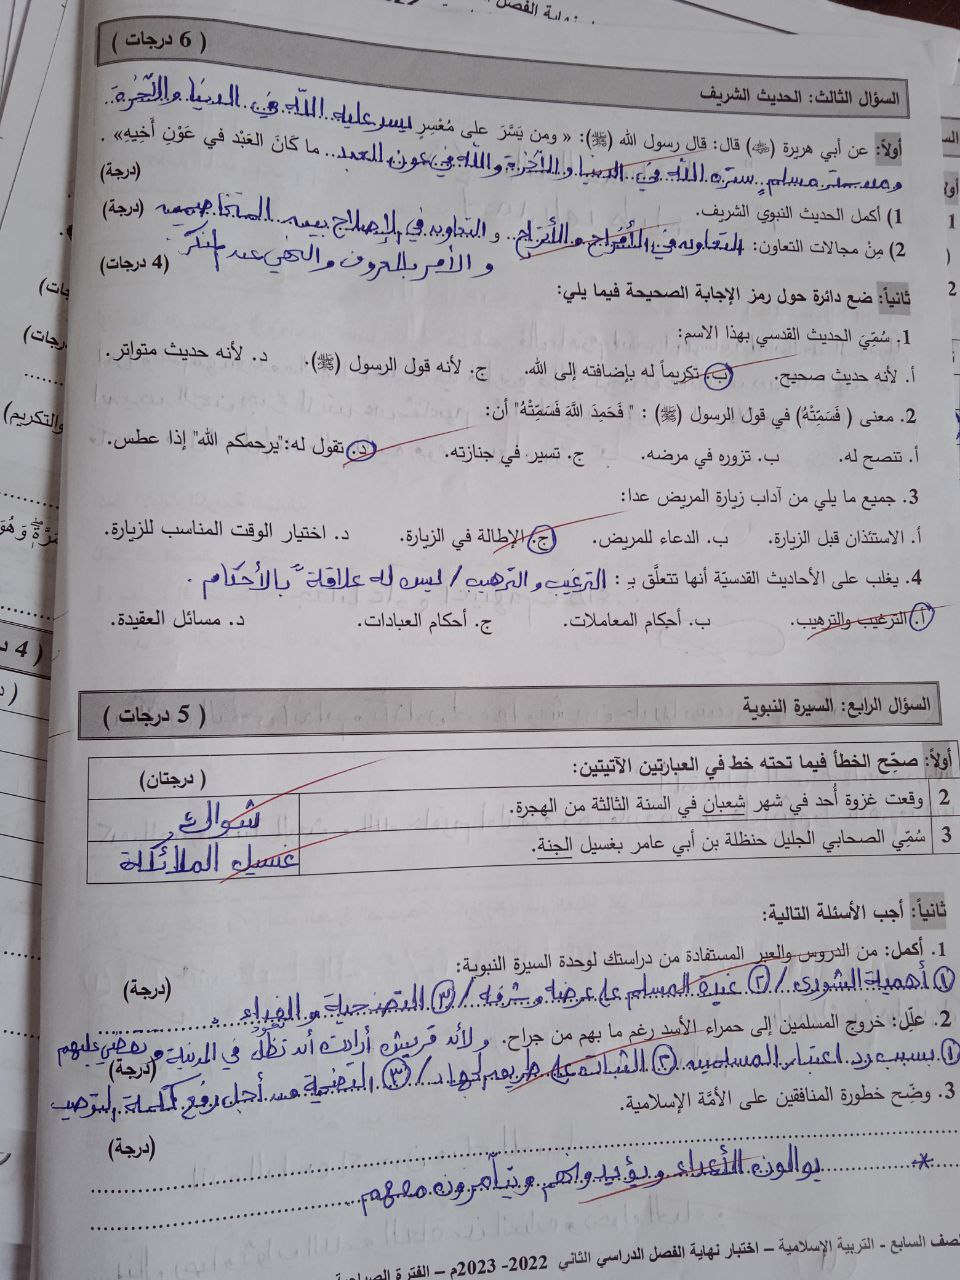 السؤال الثالث: الحديث الشريف ( 6 درجات )
أولاً: عن أبي هريرة (ﷺ) قال: قال رسول الله (ﷺ): « ومن يَسَّرَ على مُعْسِرٍ يسر عليه الله في الدنيا والآخرة
ومن ستر مسلم ستره الله في الدنيا والآخرة والله في عون العبد ما كَانَ العَبْد في عَوْنِ أَخِيهِ» .
1) أكمل الحديث النبوي الشريف. (درجة)
2) مِنْ مجالات التعاون: التعاون في الأفراح والأتراح و التعاون في الإصلاح بين المتخاصمين (درجة)
و الأمر بالمعروف والنهي عن المنكر
ثانياً: ضع دائرة حول رمز الإجابة الصحيحة فيما يلي: (4 درجات)
1. سُمِّيَ الحديث القدسي بهذا الاسم:
أ. لأنه حديث صحيح. ب. تكريماً له بإضافته إلى الله. ج. لأنه قول الرسول (ﷺ). د. لأنه حديث متواتر.
2. معنى ( فَسَمِّتْهُ) في قول الرسول (ﷺ) : " فَحَمِدَ اللَّهَ فَسَمِّتْهُ" أن:
أ. تنصح له. ب. تزوره في مرضه. ج. تسير في جنازته. د. تقول له:"يرحمكم الله" إذا عطس.
3. جميع ما يلي من آداب زيارة المريض عدا:
أ. الاستئذان قبل الزيارة. ب. الدعاء للمريض. ج. الإطالة في الزيارة. د. اختيار الوقت المناسب للزيارة.
4. يغلب على الأحاديث القدسيّة أنها تتعلَّق بـ : الترغيب والترهيب / ليس له علاقة بالأحكام .
أ. الترغيب والترهيب. ب. أحكام المعاملات. ج. أحكام العبادات. د. مسائل العقيدة.
السؤال الرابع: السيرة النبوية ( 5 درجات )
أولاً: صحِّح الخطأ فيما تحته خط في العبارتين الآتيتين: ( درجتان)
2 وقعت غزوة أُحد في شهر شعبان في السنة الثالثة من الهجرة. شوال
3 سُمِّي الصحابي الجليل حنظلة بن أبي عامر بغسيل الجنة. غسيل الملائكة
ثانياً: أجب الأسئلة التالية:
1. أكمل: من الدروس والعبر المستفادة من دراستك لوحدة السيرة النبوية:
① أهمية الشورى / ② غيرة المسلم على عرضه وشرفه / ③ التضحية والفداء (درجة)
2. علّل: خروج المسلمين إلى حمراء الأسد رغم ما بهم من جراح. ولأن قريش أرادت أن تظل في المدينة وتقضي عليهم
① بسبب رد اعتبار المسلمين ② الثبات على طريقهم / ③ التضحية من أجل رفع كلمة التوحيد (درجة)
3. وضّح خطورة المنافقين على الأمَّة الإسلامية.
(درجة)
* يوالون الأعداء ويؤيدوانهم ويتآمرون معهم
الصف السابع - التربية الإسلامية – اختبار نهاية الفصل الدراسي الثاني 2022- 2023م – الفترة